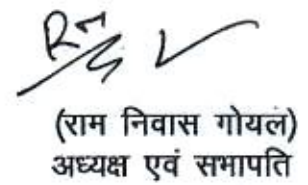 (राम निवास गोयल)
अध्यक्ष एवं सभापति